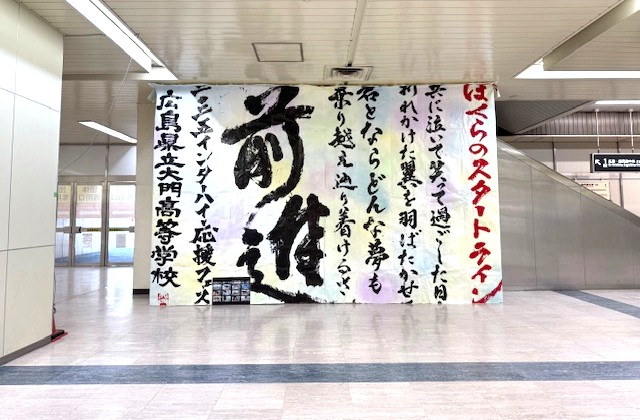 ぼくらのスタートライン
共に泣いて笑って過ごした日
折れかけた翼を羽ばたかせ
君とならどんな夢も
乗り越え辿り着けるさ
前進
二〇二五インターハイ応援フェス
広島県立大門高等学校